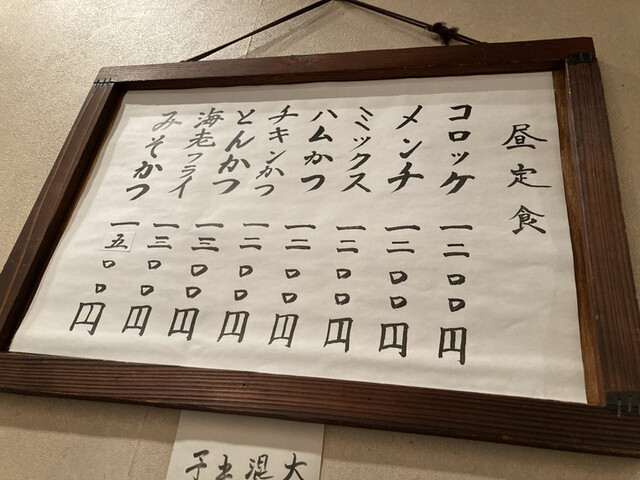 昼定食
コロッケ 一二〇〇円
メンチ 一二〇〇円
ミックス 一二〇〇円
ハムかつ 一二〇〇円
チキンかつ 一二〇〇円
とんかつ 一三〇〇円
海老フライ 一三〇〇円
みそかつ 一五〇〇円
大
混